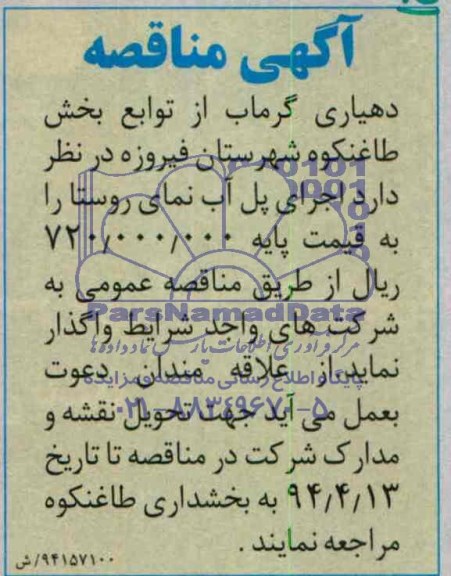 آگهی مناقصه
دهیاری گرماب از توابع بخش
طاغنکوه شهرستان فیروزه در نظر
دارد اجرای پل آب نمای روستا را
به قیمت پایه ۷۲۰/۰۰۰/۰۰۰
ریال از طریق مناقصه عمومی به
شرکت های واجد شرایط واگذار
نماید.از علاقه مندان دعوت
بعمل می آید جهت تحویل نقشه و
مدارک شرکت در مناقصه تا تاریخ
۹۴/۴/۱۳ به بخشداری طاغنکوه
مراجعه نمایند .
۹۴۱۵۷۱۰۰/ش
ParsNamadData
مرکز فرآوری اطلاعات پارس نماد داده ها
پایگاه اطلاع رسانی مناقصه و مزایده
۰۲۱-۸۸۳۴۹۶۷۰-۵